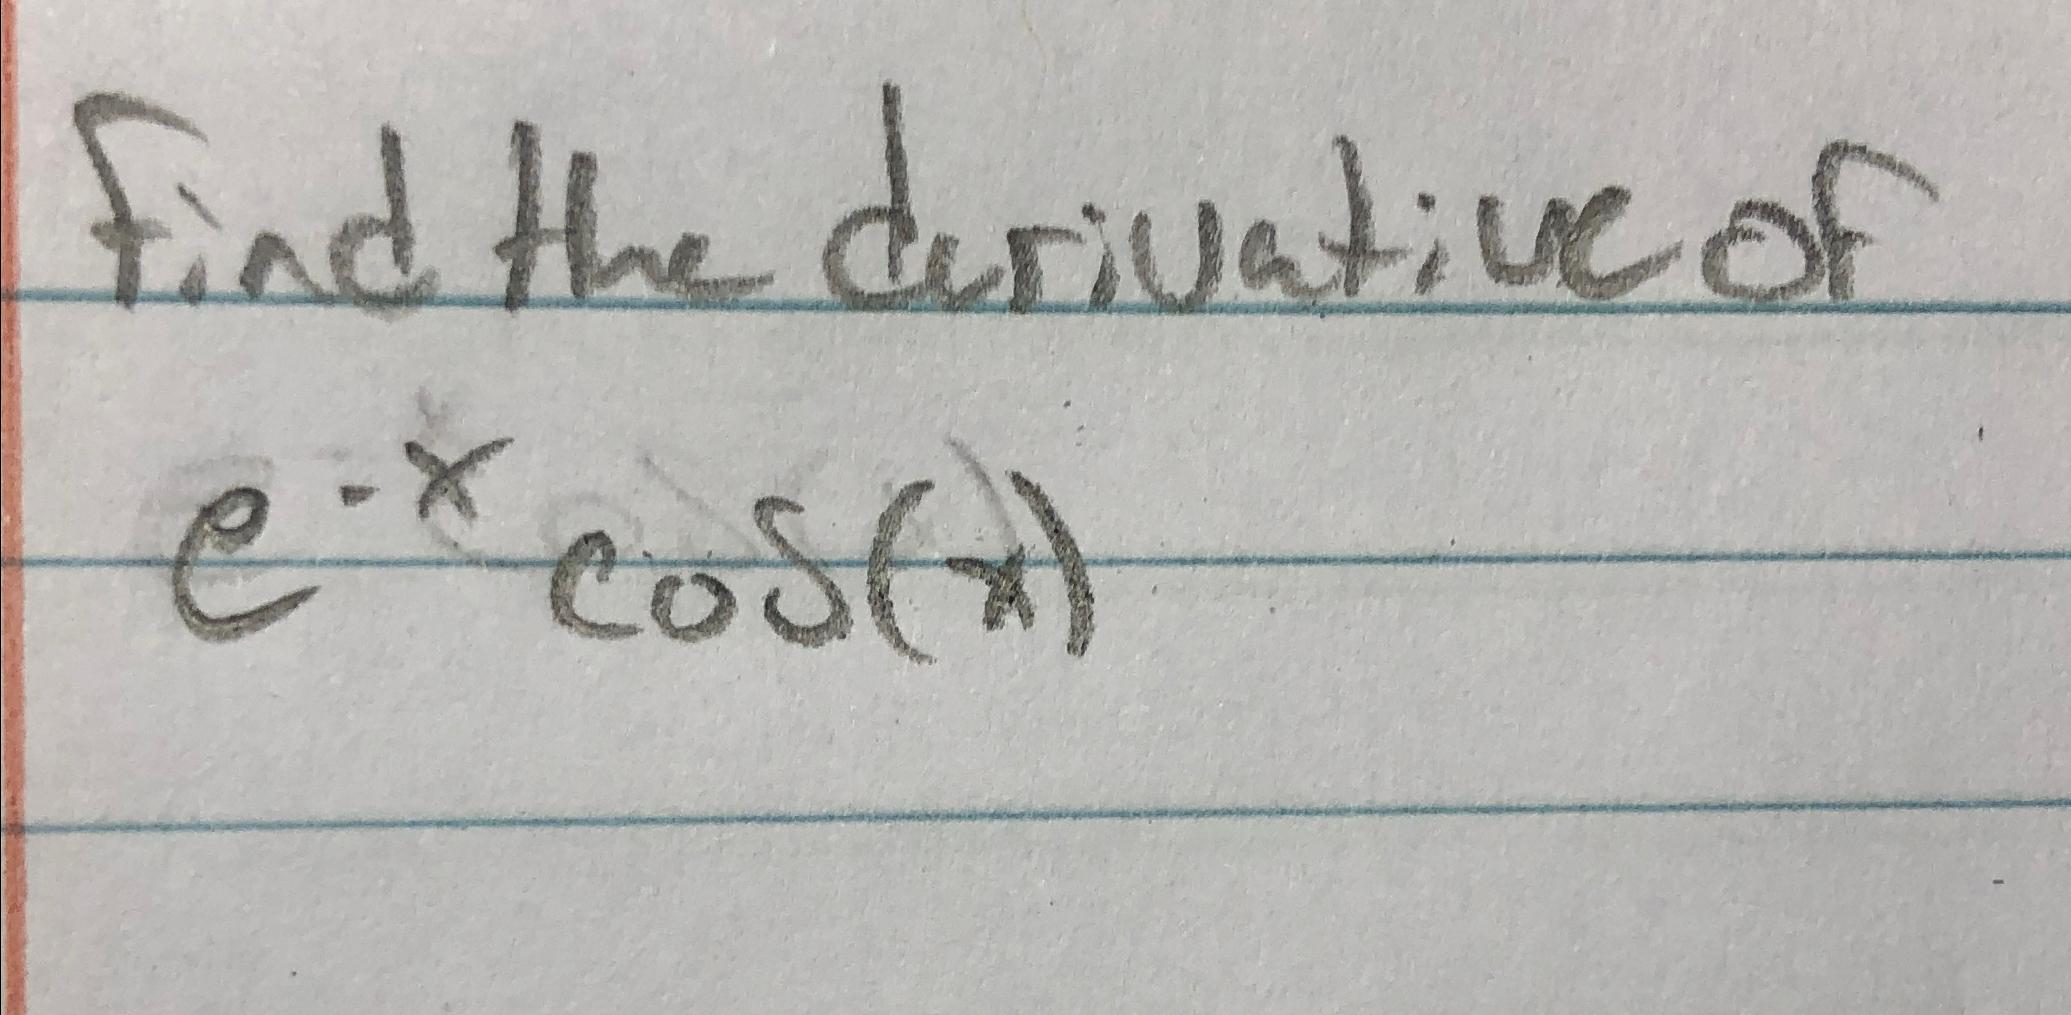 Find the derivative of
e^-x cos(x)